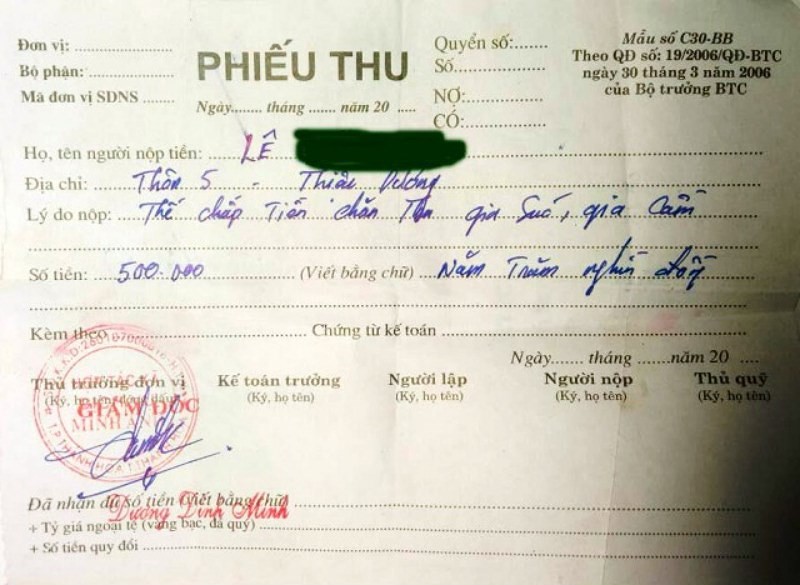 Đơn vị: ............
Bộ phận: ............
Mã đơn vị SDNS ........
PHIẾU THU
Ngày........ tháng ....... năm 20 .....
Quyển số:......
Số..................
NỢ:................
CÓ:................
Mẫu số C30-BB
Theo QĐ số: 19/2006/QĐ-BTC
ngày 30 tháng 3 năm 2006
của Bộ trưởng BTC
Họ, tên người nộp tiền: LÊ
Địa chỉ: Thôn 5 - Thiệu Dương
Lý do nộp: Thế chấp Tiền chăn gia súc, gia cầm
Số tiền: 500.000 (Viết bằng chữ) Năm Trăm nghìn đồng
Kèm theo ............ Chứng từ kế toán ............
Ngày....... tháng .......năm 20 .....
Thủ trưởng đơn vị Kế toán trưởng Người lập Người nộp Thủ quỹ
(Ký, họ tên, đóng dấu) (Ký, họ tên) (Ký, họ tên) (Ký, họ tên) (Ký, họ tên)
GIÁM ĐỐC
MINH ANH
T.P THANH HÓA T.THANH
Dương Đình Minh
Đã nhận đủ số tiền (Viết bằng chữ) ............
+ Tỷ giá ngoại tệ (vàng bạc, đá quý) ............
+ Số tiền quy đổi ............